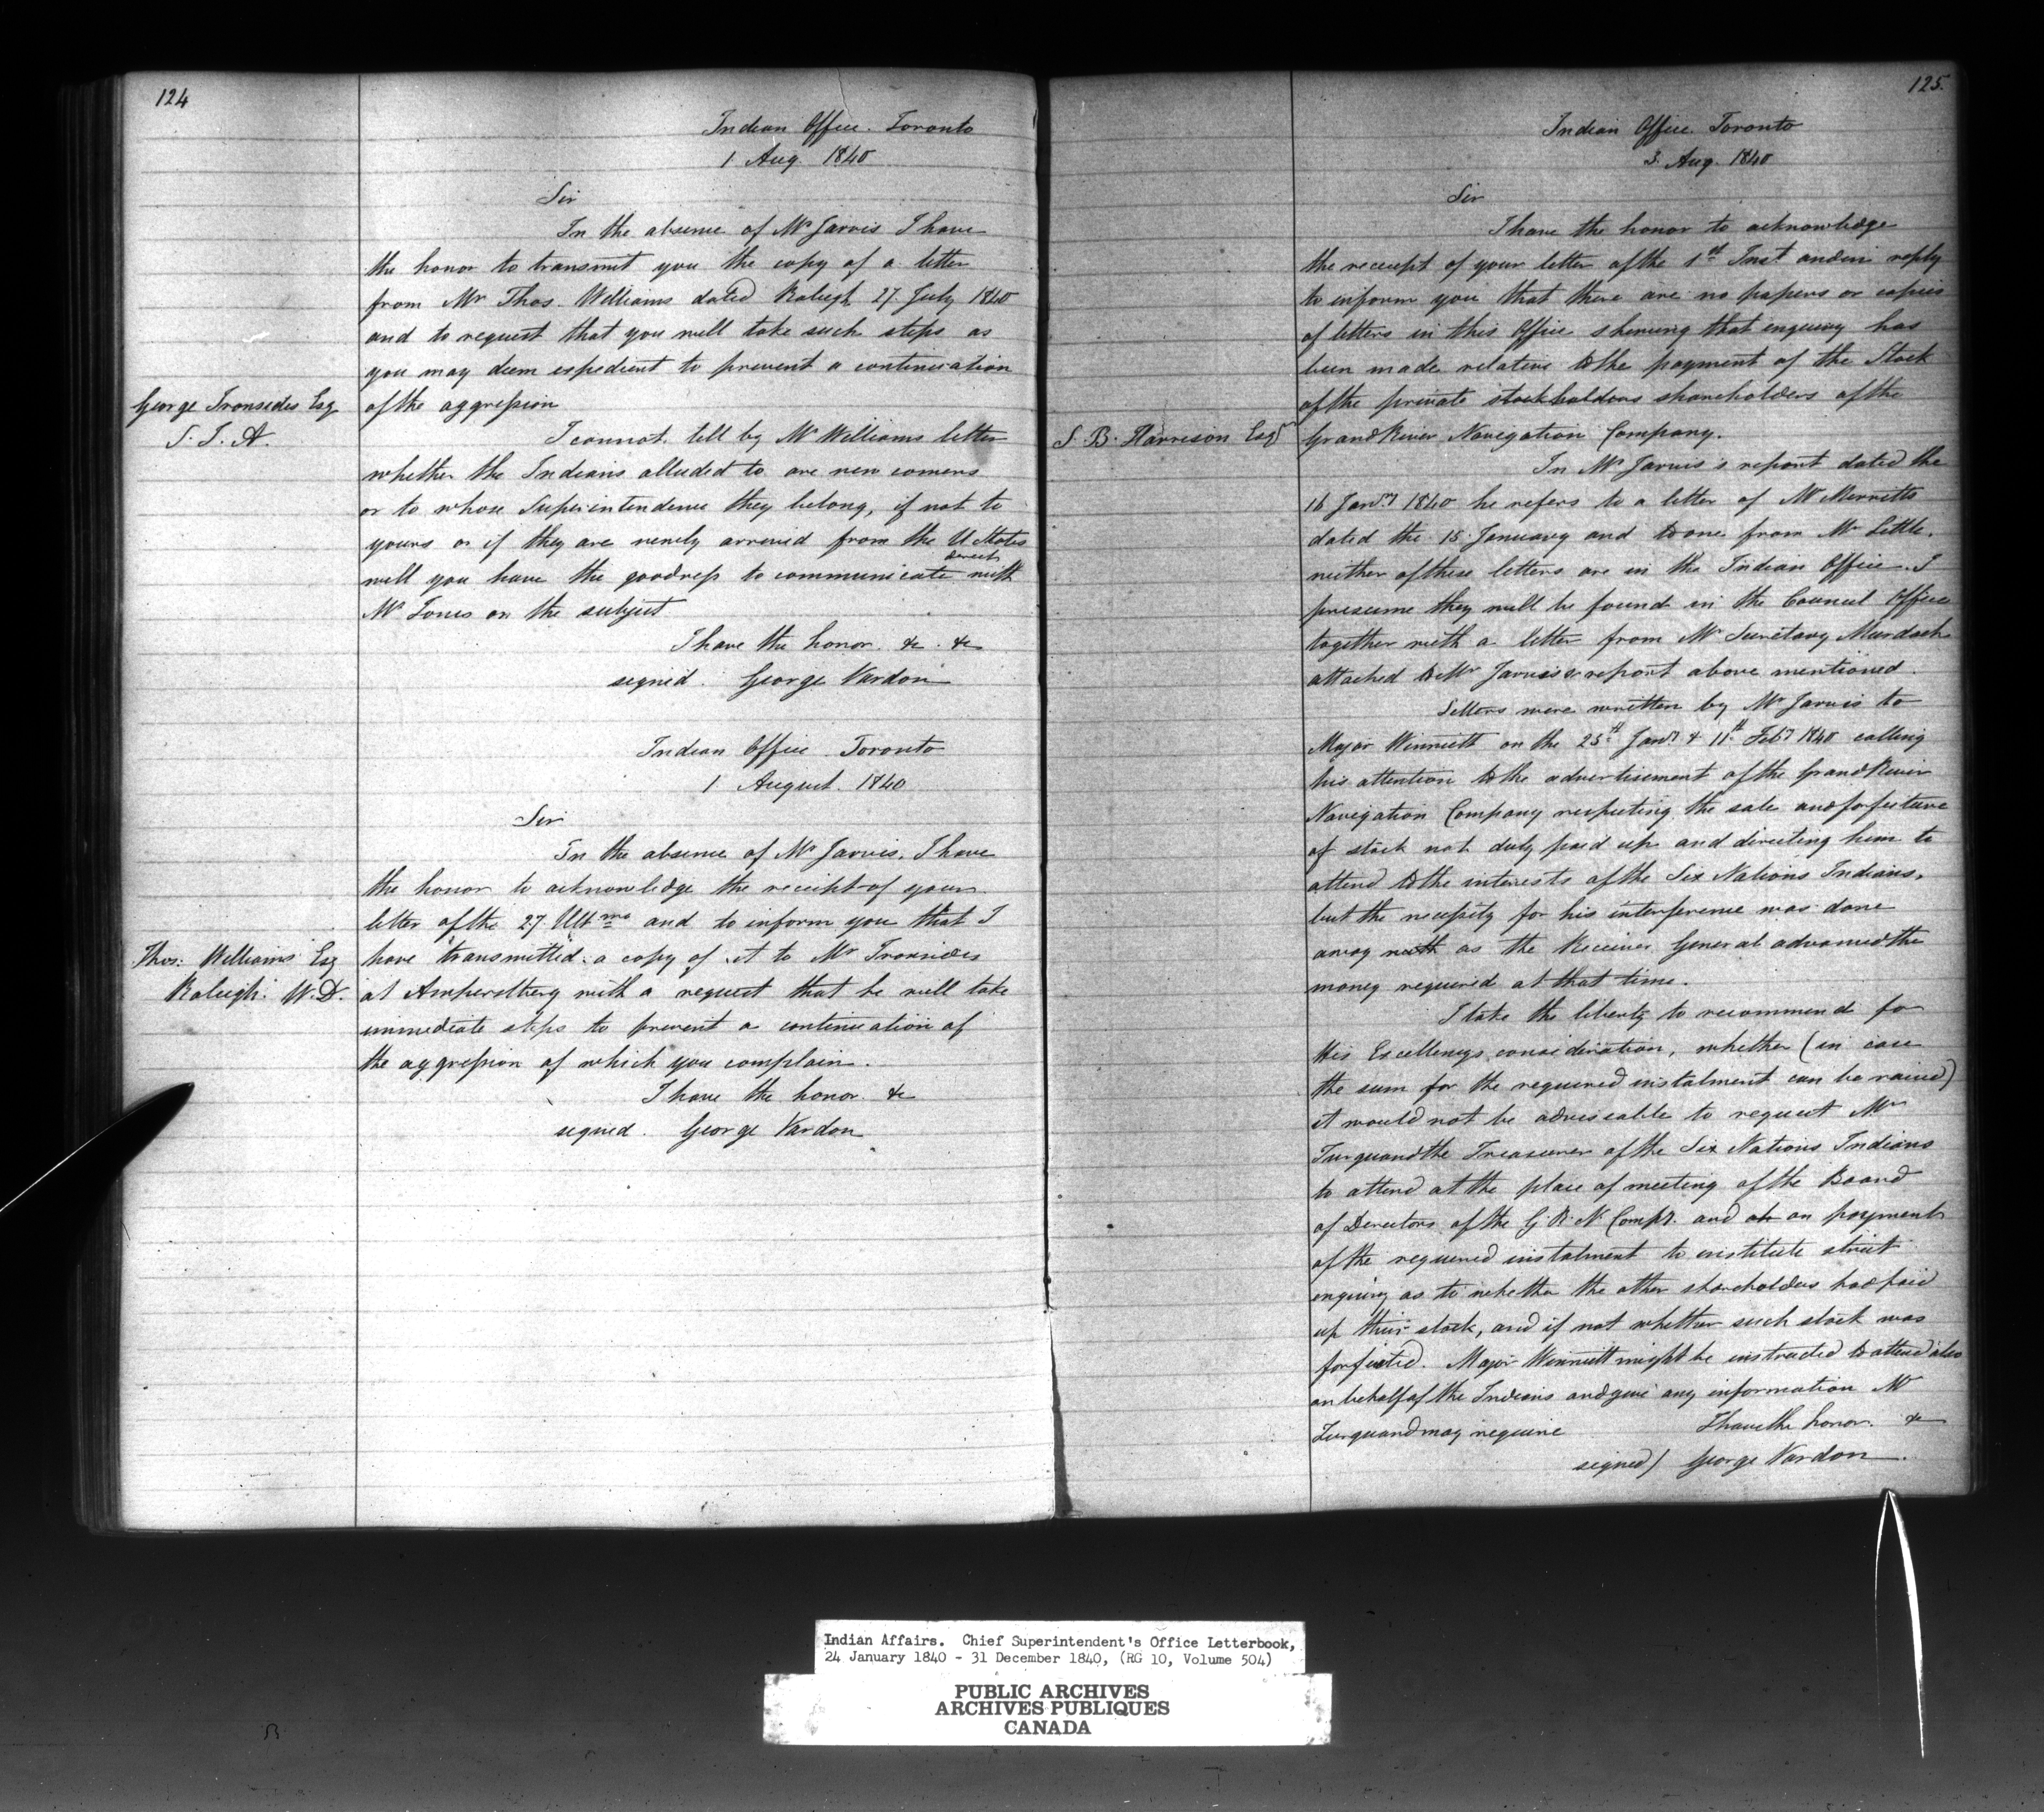 124
Indian Office. Toronto
1 Aug. 1840
Sir
In the absence of Mr Jarvis I have
the honor to transmit you the copy of a letter
from Mr Thos. Williams dated Raleigh 27 July 1840
and to request that you will take such steps as
you may deem expedient to prevent a continuation
George Ironsides Esq
of the aggression
S. I. A.
I cannot tell by Mr Williams letter
whether the Indians alluded to are new comers
or to whose Superintendence they belong, if not to
yours or if they are newly arrived from the U States
direct
will you have the goodness to communicate with
Mr Jones on the subject
I have the honor. &c. &c
signed. George Vardon
Indian Office Toronto
1 August. 1840
Sir
In the absence of Mr Jarvis, I have
the honor to acknowledge the receipt of your
letter of the 27 Ultmo and to inform you that I
Thos: Williams Esq
have transmitted a copy of it to Mr Ironsides
Raleigh. W.D.
at Amherstberg with a request that he will take
immediate steps to prevent a continuation of
the aggression of which you complain.
I have the honor &c
signed. George Vardon
125.
Indian Office. Toronto
3. Aug. 1840
Sir
I have the honor to acknowledge
the receipt of your letter of the 1st Inst and in reply
to inform you that there are no papers or copies
of letters in this Office shewing that enquiry has
been made relative to the payment of the Stock
of the private stockholders shareholders of the
S. B. Harrison Esqr
Grand River Navigation Company.
In Mr Jarvis's report dated the
16 Jany 1840 he refers to a letter of Mr Merritts
dated the 15 January and to one from Mr Little,
neither of these letters are in the Indian Office. I
presume they will be found in the Council Office
together with a letter from Mr Secretary Murdoch
attached to Mr Jarvis's report above mentioned.
Letters were written by Mr Jarvis to
Major Winniett on the 25th Jany & 11th Feby 1840 calling
his attention to the advertisement of the Grand River
Navigation Company respecting the sale and forfeiture
of stock not duly paid up and directing him to
attend to the interests of the Six Nations Indians,
but the necessity for his interference was done
away with as the Receiver General advanced the
money required at that time.
I take the liberty to recommend for
His Excellencys consideration, whether (in case
the sum for the required instalment can be raised)
it would not be adviseable to request Mr
Turquand the Treasurer of the Six Nations Indians
to attend at the place of meeting of the Board
of Directors of the G. R. N. Compy. and on payment
of the required instalment to institute strict
enquiry as to whether the other shareholders had paid
up their stock, and if not whether such stock was
forfeited. Major Winniett might be instructed to attend also
on behalf of the Indians and give any information Mr
Turquand may require I have the honor. &c
signed) George Vardon.
Indian Affairs. Chief Superintendent's Office Letterbook,
24 January 1840 - 31 December 1840, (RG 10, Volume 504)
PUBLIC ARCHIVES
ARCHIVES PUBLIQUES
CANADA